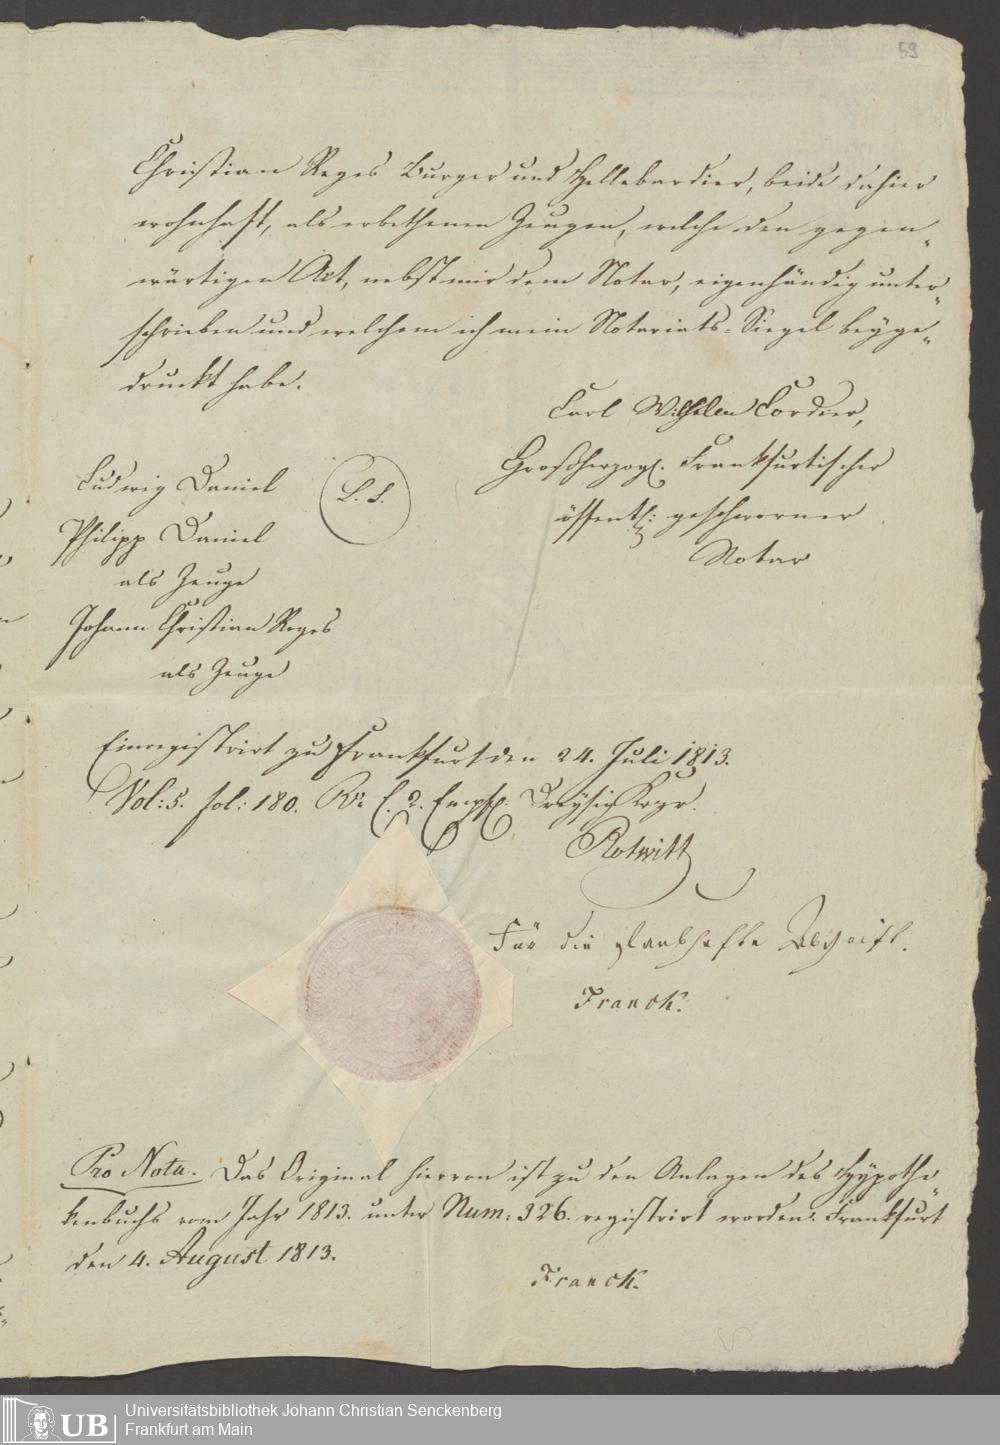 59
Christian Reges Burger und Hellebardier, beide dahier
wohnhaft, als erbethenen Zeugen, welche den gegen„
wärtigen Act, nebst mir dem Notar, eigenhändig unter„
schrieben und welchem ich mein Notariats-Siegel beyge„
druckt habe.
Carl Wilhelm Cordier,
Großherzogl. Frankfurtischer
öffentl: geschworner
Notar
Ludwig Daniel
L. S.
Philipp Daniel
als Zeuge
Johann Christian Reges
als Zeuge
Einregistrirt zu Frankfurt den 24. Juli 1813.
Vol: 5. fol: 180. f. 2. Empf: Dreysig Krzr.
Rotwitt
Für die glaubhafte Abschrift.
Franck.
Pro Nota. Das Original hiervon ist zu den Anlagen des Hÿpothe„
kenbuchs vom Jahr 1813. unter Num: 326. registrirt worden. Frankfurt
den 4. August 1813.
Franck.
UB
Universitätsbibliothek Johann Christian Senckenberg
Frankfurt am Main